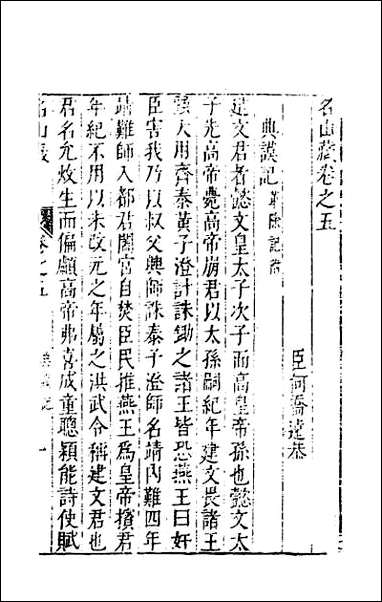 名山藏卷之五
臣何喬遠恭
典謨記 革除記附
建文君者懿文皇太子次子而高皇帝孫也懿文太
子先高帝薨高帝崩君以太孫嗣紀年建文畏諸王
大用齊泰黃子澄計誅鋤之諸王皆恐燕王曰奸
臣害我乃以叔父興師誅泰子澄師名靖內難四年
難師入都君闔宮自焚臣民推燕王爲皇帝擯君
年紀不用以未改元之年屬之洪武令稱建文君也
君名允炆生而偏顱高帝弗喜成童聰穎能詩使賦
名山藏
卷之五
一